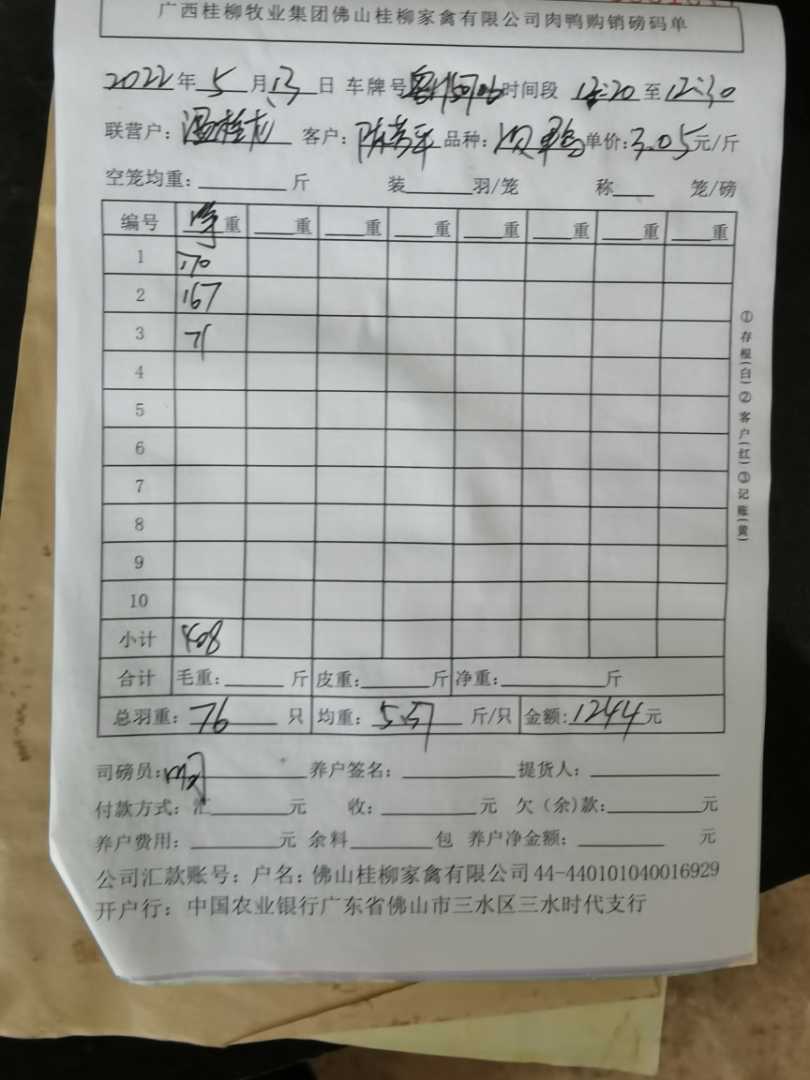 广西桂柳牧业集团佛山桂柳家禽有限公司肉鸭购销磅码单
2022年5月13日 车牌号 时间段 12:20至12:30
联营户: 客户: 品种: 单价:3.05元/斤
空笼均重:____斤 装____羽/笼 称____笼/磅
编号 净重 ____重 ____重 ____重 ____重 ____重 ____重 ____重
1 170
2 167
3 71
4
5
6
7
8
9
10
小计 408
合计 毛重:____斤 皮重:____斤 净重:____斤
总羽重:76只 均重:5.37斤/只 金额:1244元
司磅员: 养户签名:____ 提货人:____
付款方式:汇____元 收:____元 欠(余)款:____元
养户费用:____元 余料____包 养户净金额:____元
公司汇款账号:户名:佛山桂柳家禽有限公司 44-440101040016929
开户行:中国农业银行广东省佛山市三水区三水时代支行
①存根(白)②客户(红)③记账(黄)